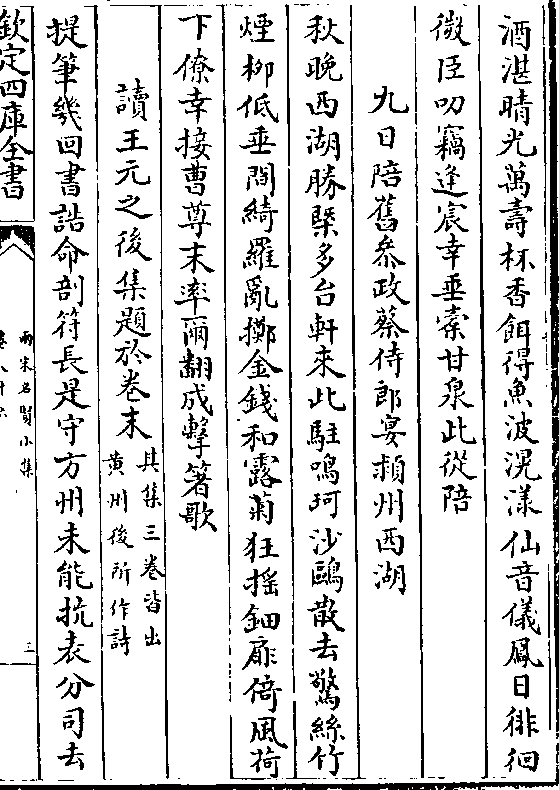 酒湛晴光萬壽杯香餌得魚波滉漾仙音儀鳳日徘徊
微臣叨竊逢宸幸垂橐甘泉此從陪
九日陪舊叅政蔡侍郎宴頴州西湖
秋晚西湖勝槩多台軒來此駐鳴珂沙鷗散去驚絲竹
煙栁低垂間綺羅亂擲金錢和露菊狂摇鈿扇倚風荷
下僚幸接曹尊末率爾翻成擊箸歌
讀王元之後集題於卷末
其集三卷皆出
黄州後所作詩
提筆幾回書誥命剖符長是守方州未能抗表分司去
欽定四庫全書
兩宋名賢小集
三